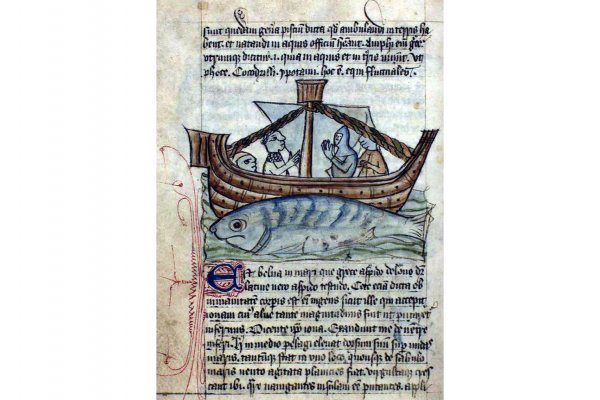 sunt quedam gen̄a pisciū dicta qđ ambulandi in terris ha
bent. et natandi in aquis officiū h̄ant. Amphi em̄ gre
utrumque dicitur .i. quia in aquis et in t̄ris uiuūt. vt
phoce. Cocodrilli. ypotami. hoc ē. equi fluctuales.
Est belua in mari que grece aspido delone dr̄
latine uero aspido testudo. Cete eciā dicta ob
inmanitatem corpis est em̄ ingens sicut ille qui excepit
ionam cui' alue tante magnitudinis fuit ut putaret
infernus. Dicente ip̄o iona. Exaudiuit me de uentre
inferi. h̄ in medio pelagi eleuat dorsum suū sup undas
maris. tantūq; stat in uno loco. quousq; de sabulo
maris uento agitata planicies fiat. virgultaq; cres
cant ibi. Qr̄ nauigantes insulam eē putantes. appli